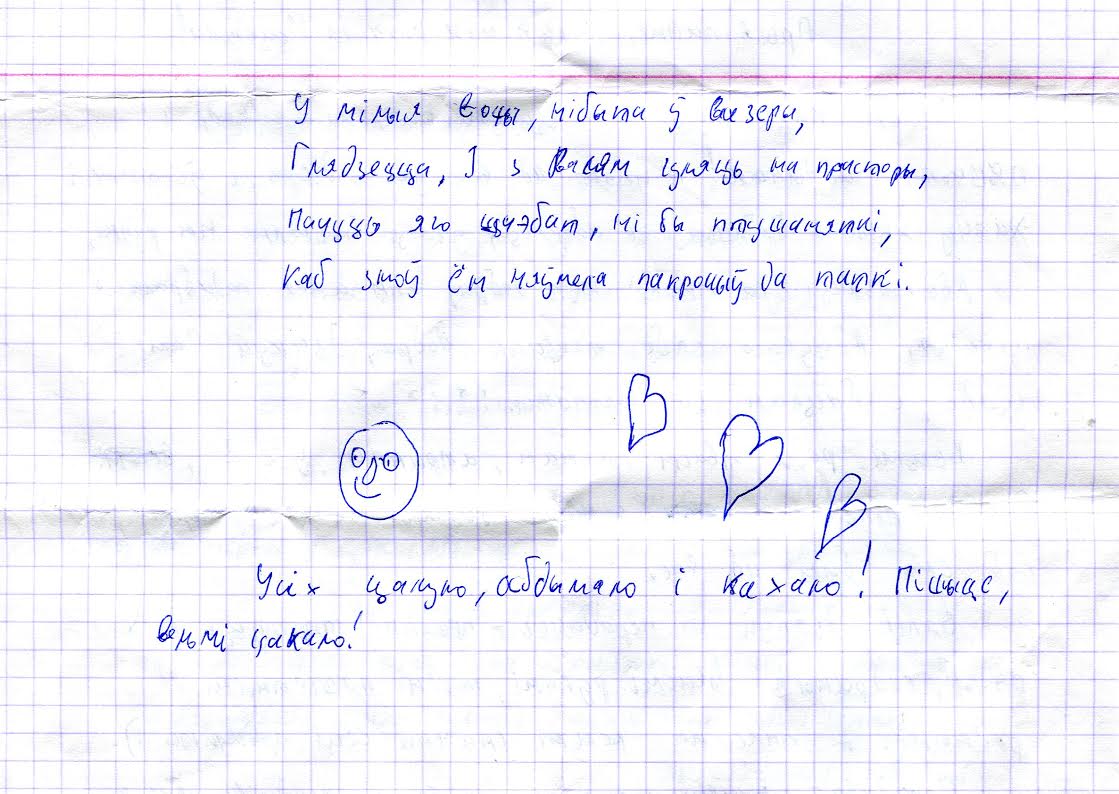 У мілыя вочы, нібыта ў вазеры,
Глядзецца, І з Валяй гуляць на прасторы,
Пачуць яго шчэбат, ні бы птушаняткі,
Каб зноў ён няўмела пакрочыў да таткі.
Усіх цалую, абдымаю і кахаю! Пішыце,
вельмі чакаю!